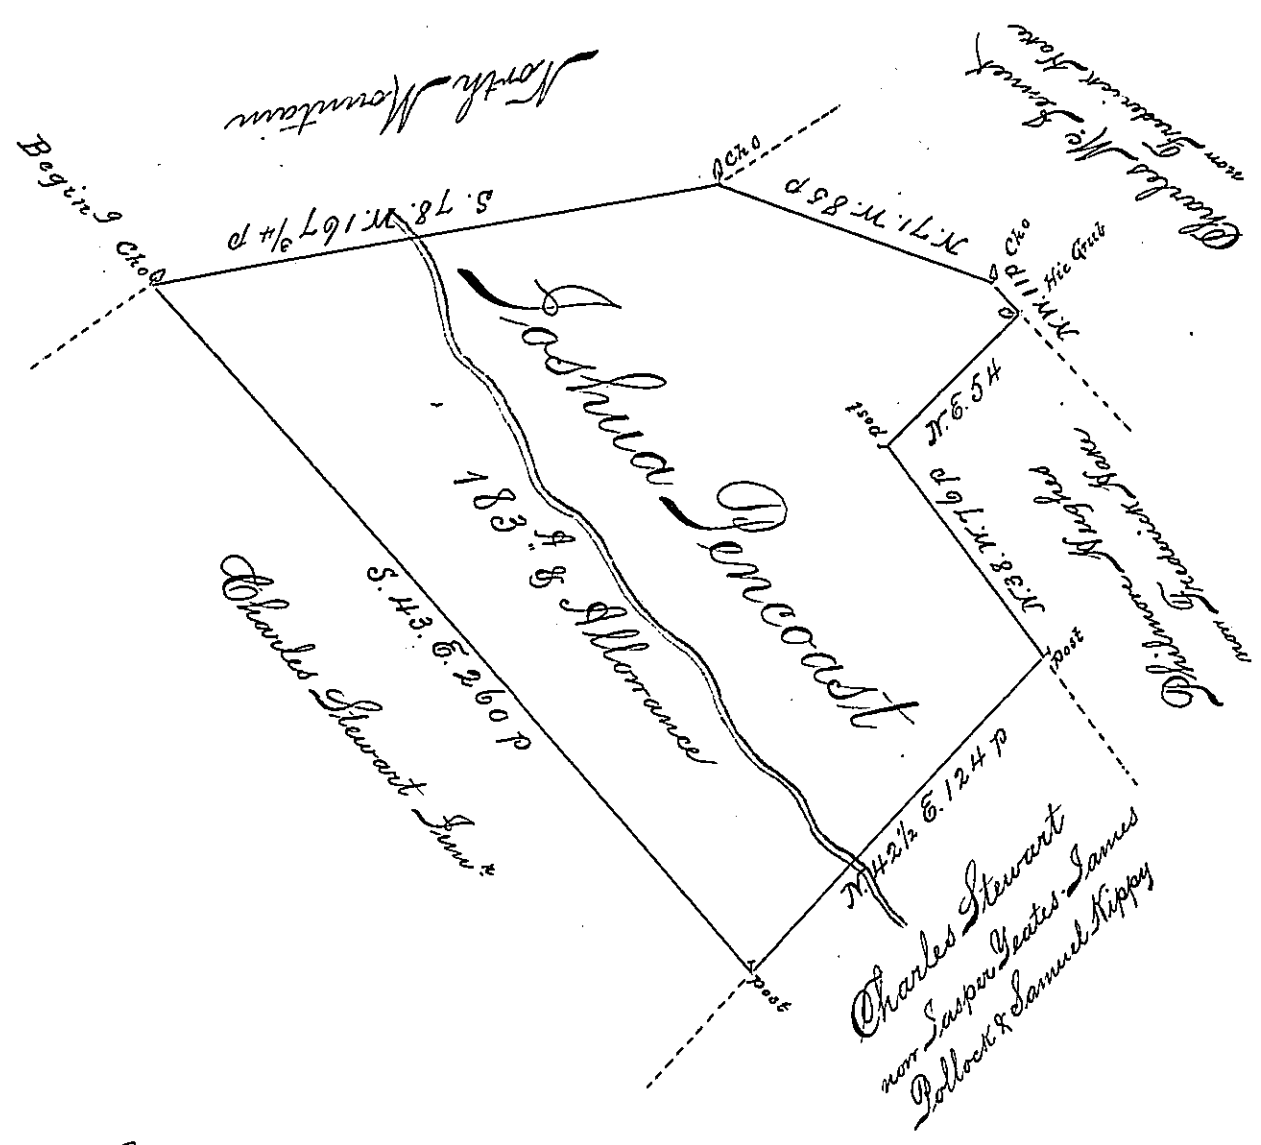 North Mountain
Charles Mc.
now Frederick Hake
Begin g
Cho
S. 78. W. 167 3/4 p
Cho
N. 71. W. 85 p
Cho
N. W. 11 p
Hic Grub
N. E. 54
post
N. 38. W. 76 p
Philimore Hughes
now Frederick Hake
post
Joshua Pencoast
183 " A & Allowance
S. 43. E. 260 p
Charles Stewart Jun.r
N. 42 1/2 E. 124 p
post
Charles Stewart
now Jasper Yeates. James
Pollock & Samuel Kippy